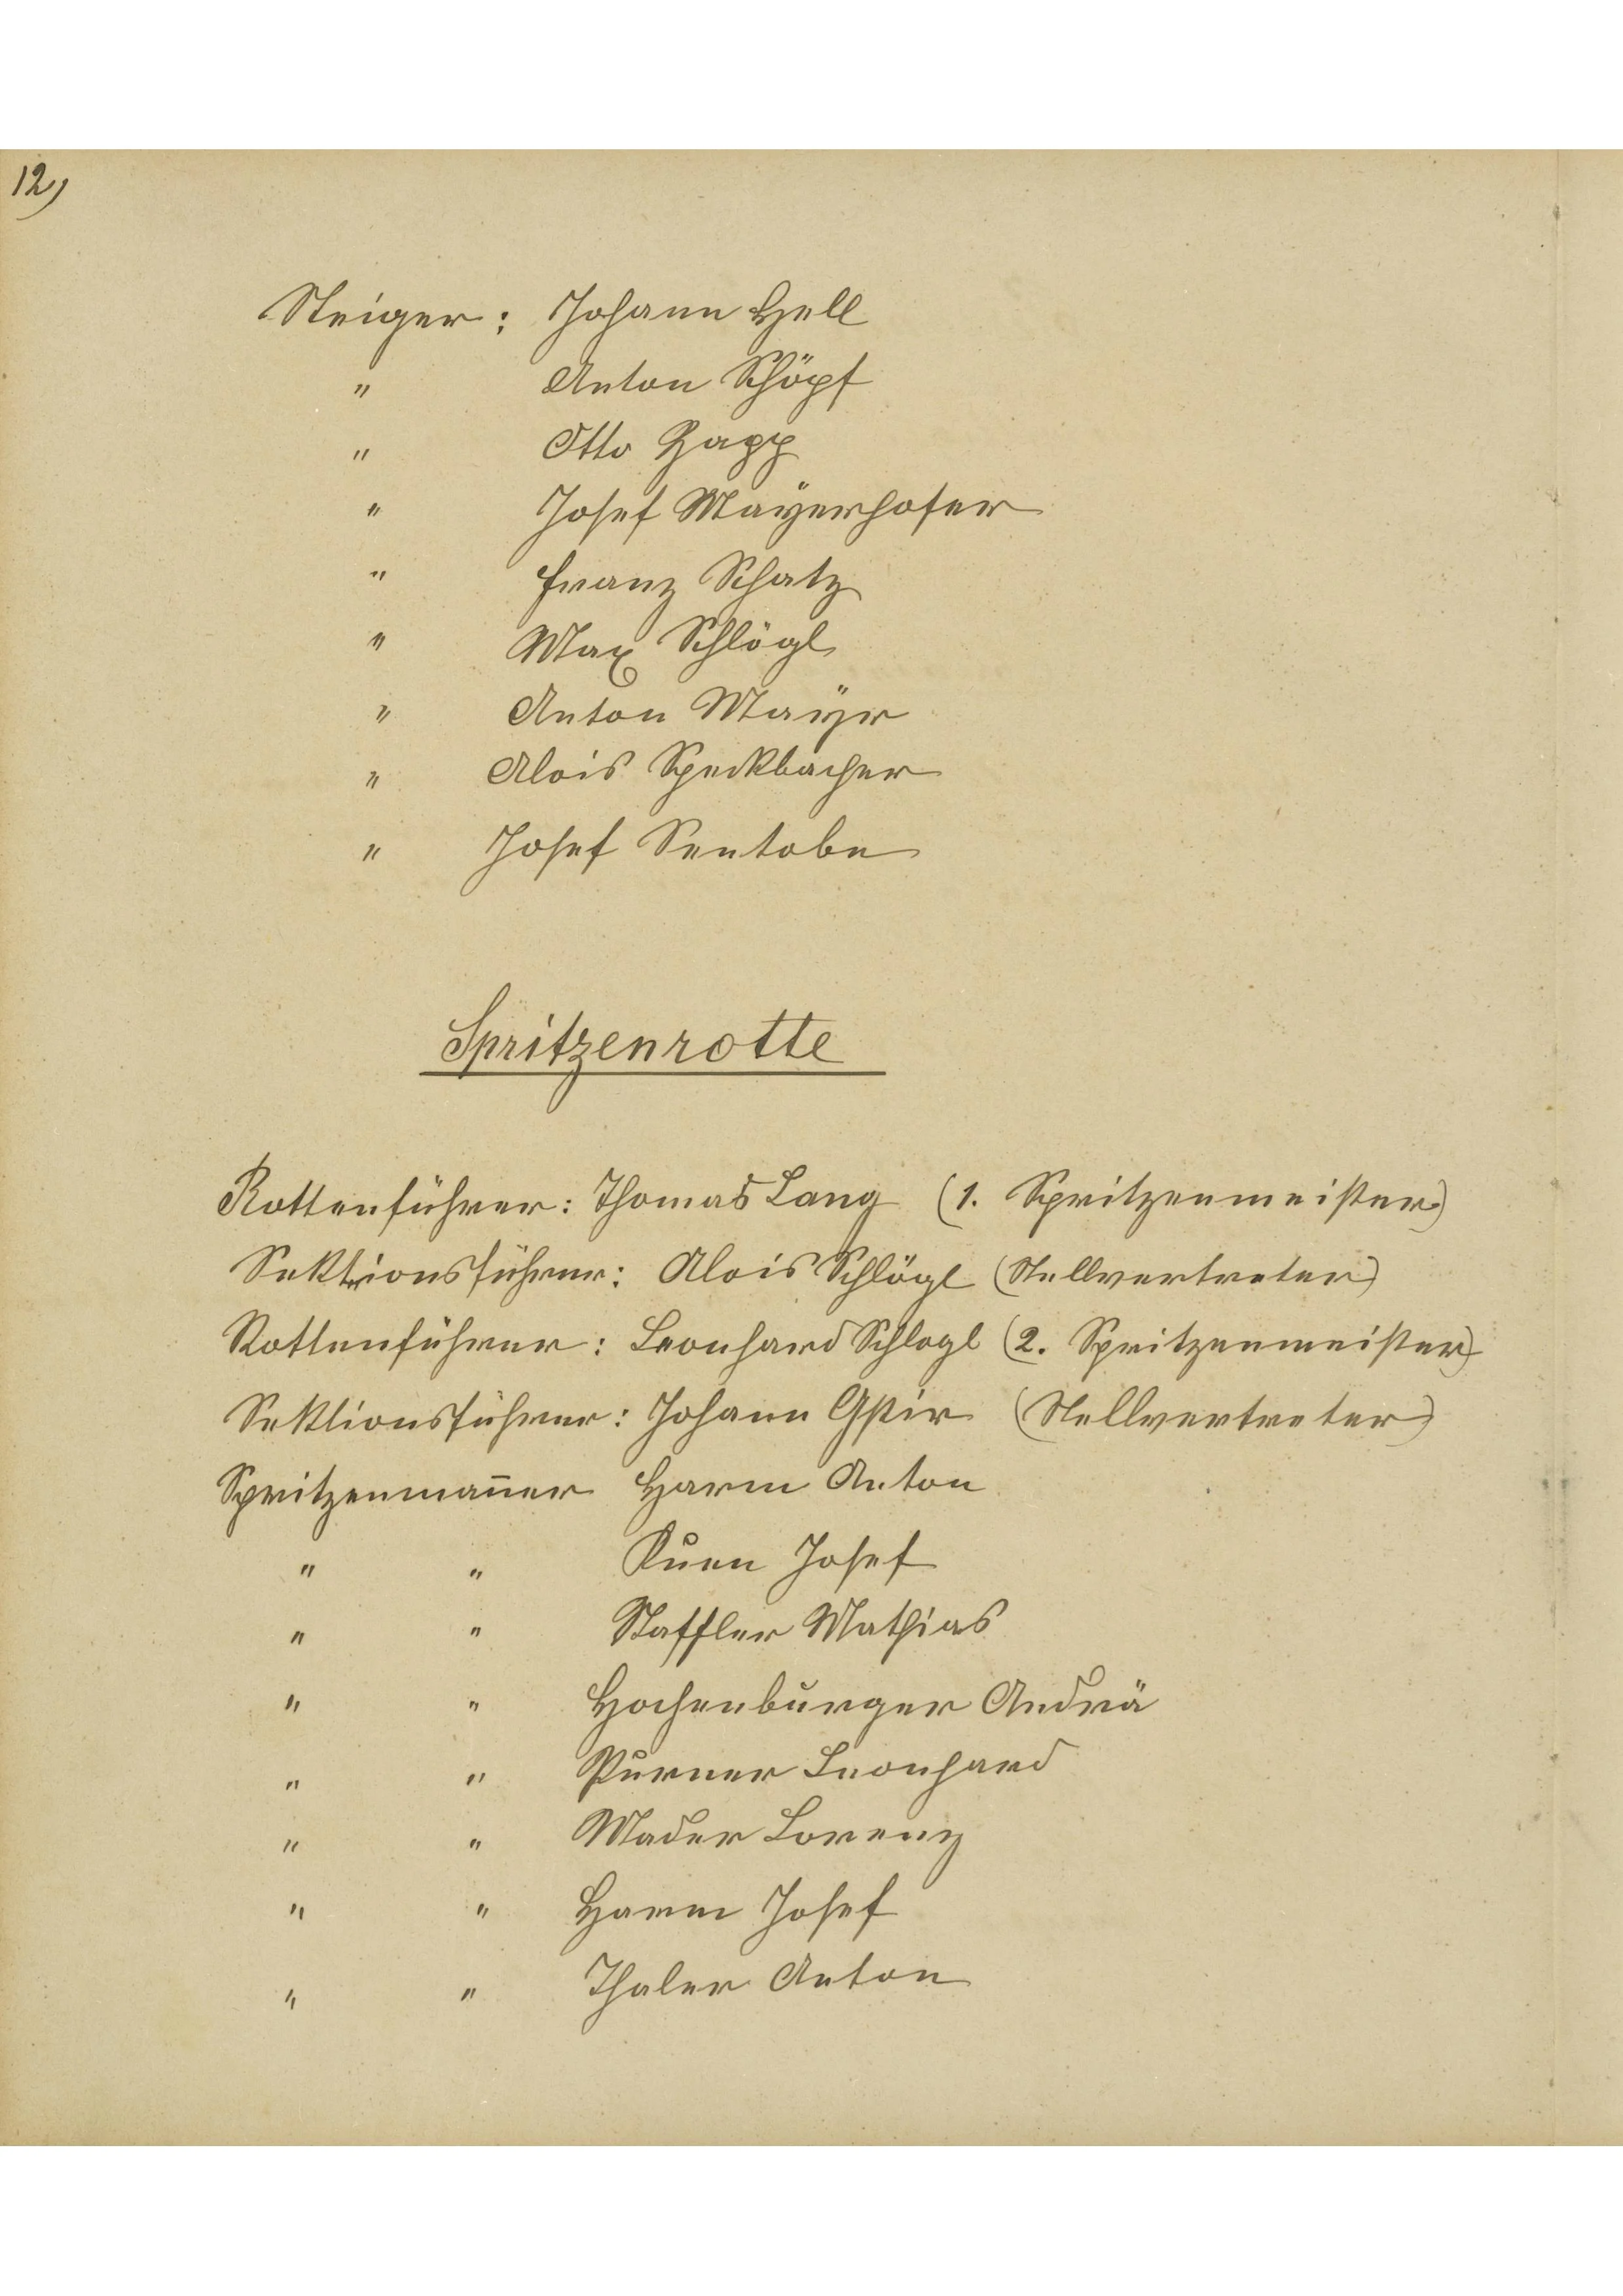 12)
Steiger: Johann Hell
" Anton Schöpf
" Otto Zapp
" Josef Mayerhofer
" Franz Schatz
" Max Schlögl
" Anton Mayr
" Alois Speckbacher
" Josef Sentobe
Spritzenrotte
Rottenführer: Thomas Lang (1. Spritzenmeister)
Sektionsführer: Alois Schlögl (Stellvertreter)
Rottenführer: Leonhard Schlogl (2. Spritzenmeister)
Sektionsführer: Johann Gstir (Stellvertreter)
Spritzenman̄er Harm Anton
" " Kuen Josef
" " Staffler Mathias
" " Hochenburger Andrä
" " Purner Leonhard
" " Mader Lorenz
" " Harm Josef
" " Thaler Anton